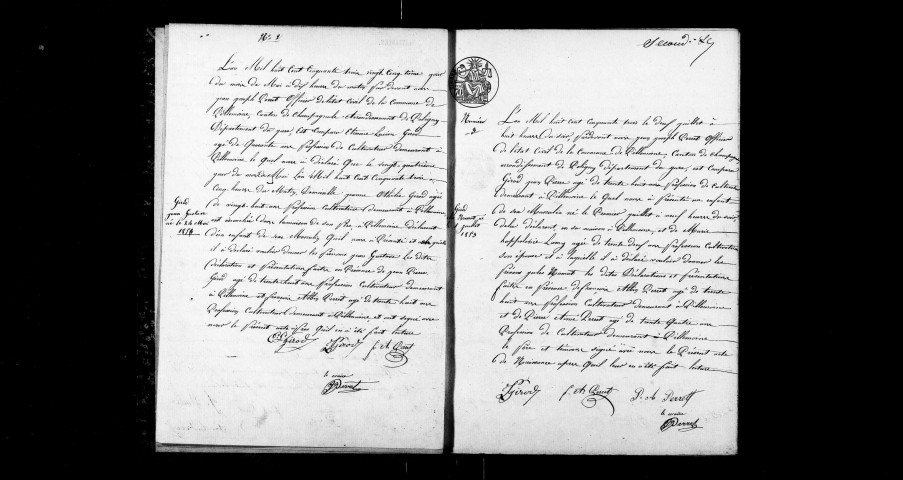 N° 1
L'an Mil huit cent cinquante trois vingt cinq trême jour
du mois de Mai à dix heure du matin par devant nous
jean joseph Perret Officier de létat Civil de la Commune de
Pillemoine, Canton de Champagnole Arrondisement de Poligny
Département du jura, est Comparu Etienne Girod
agé de quarante ans Profession de Cultivateur demeurant à
Pillemoine, le quel nous à déclaré que le vingt quatrième
jour de mois Mai L'an Mil huit cent Cinquante trois à
cinq heures du Matin, Girod agée
de vingt huit ans Profession Cultivatrice demeurant à Pillemoine
est accouchée dans la maison de son Père, à Pillemoine
d'un enfant de sexe Masculin Quil nous à Présenté et
il à déclaré vouloir donner les Prénoms jean Gustave les dites
déclaration et Présentation faites en Présence de jean Pierre
Girod agé de trente huit ans Profession Cultivateur demeurant
à Pillemoine et françois Alexis Perret agé de trente huit ans
Profession Cultivateur demeurant à Pillemoine, et ont signé avec
nous le Présent acte après Quil en à été fait lecture
Girod
jean Gustave
né le 24 Mai
1853
Girod
Girod
f. A. Perret
le maire
Perret
Second
Numéro
2
L'an Mil huit cent cinquante trois le deux juillet à
huit heures du soir, Pardevant nous jean joseph Perret Officier
de létat Civil de la Commune de Pillemoine, Canton de Champagnole
arrondisement de Poligny département du jura, est Comparu
Girod jean Pierre agé de trente huit ans Profession de Cultivateur
demeurant à Pillemoine le quel nous à Présenté un enfant
de sexe Masculin né le Premier juillet à neuf heures du soir
de lui déclarant, en sa maison à Pillemoine, et de Marie
Lamy agée de trente deux ans Profession Cultivatrice
son épouse et à laquelle il à déclaré vouloir donner les
Prénoms jules les dites Déclarations et Présentations
faites en Présence de françois Alexis Perret agé de trente
huit ans Profession Cultivateur demeurant à Pillemoine
et de Pierre Perret agé de trente Quatre ans
Profession de Cultivateur demeurant à Pillemoine
le Père et témoins signé avec nous le Présent acte
de Naissance apres Quil leur en à été fait lecture
Girod
juillet
1853
Girod
f. A. Perret
P. A. Perret
le maire
Perret